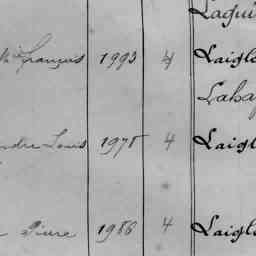 Laqui
François 1993 4 Laigle
Laha
Louis 1978 4 Laigl
Pierre 1986 4 Laigle